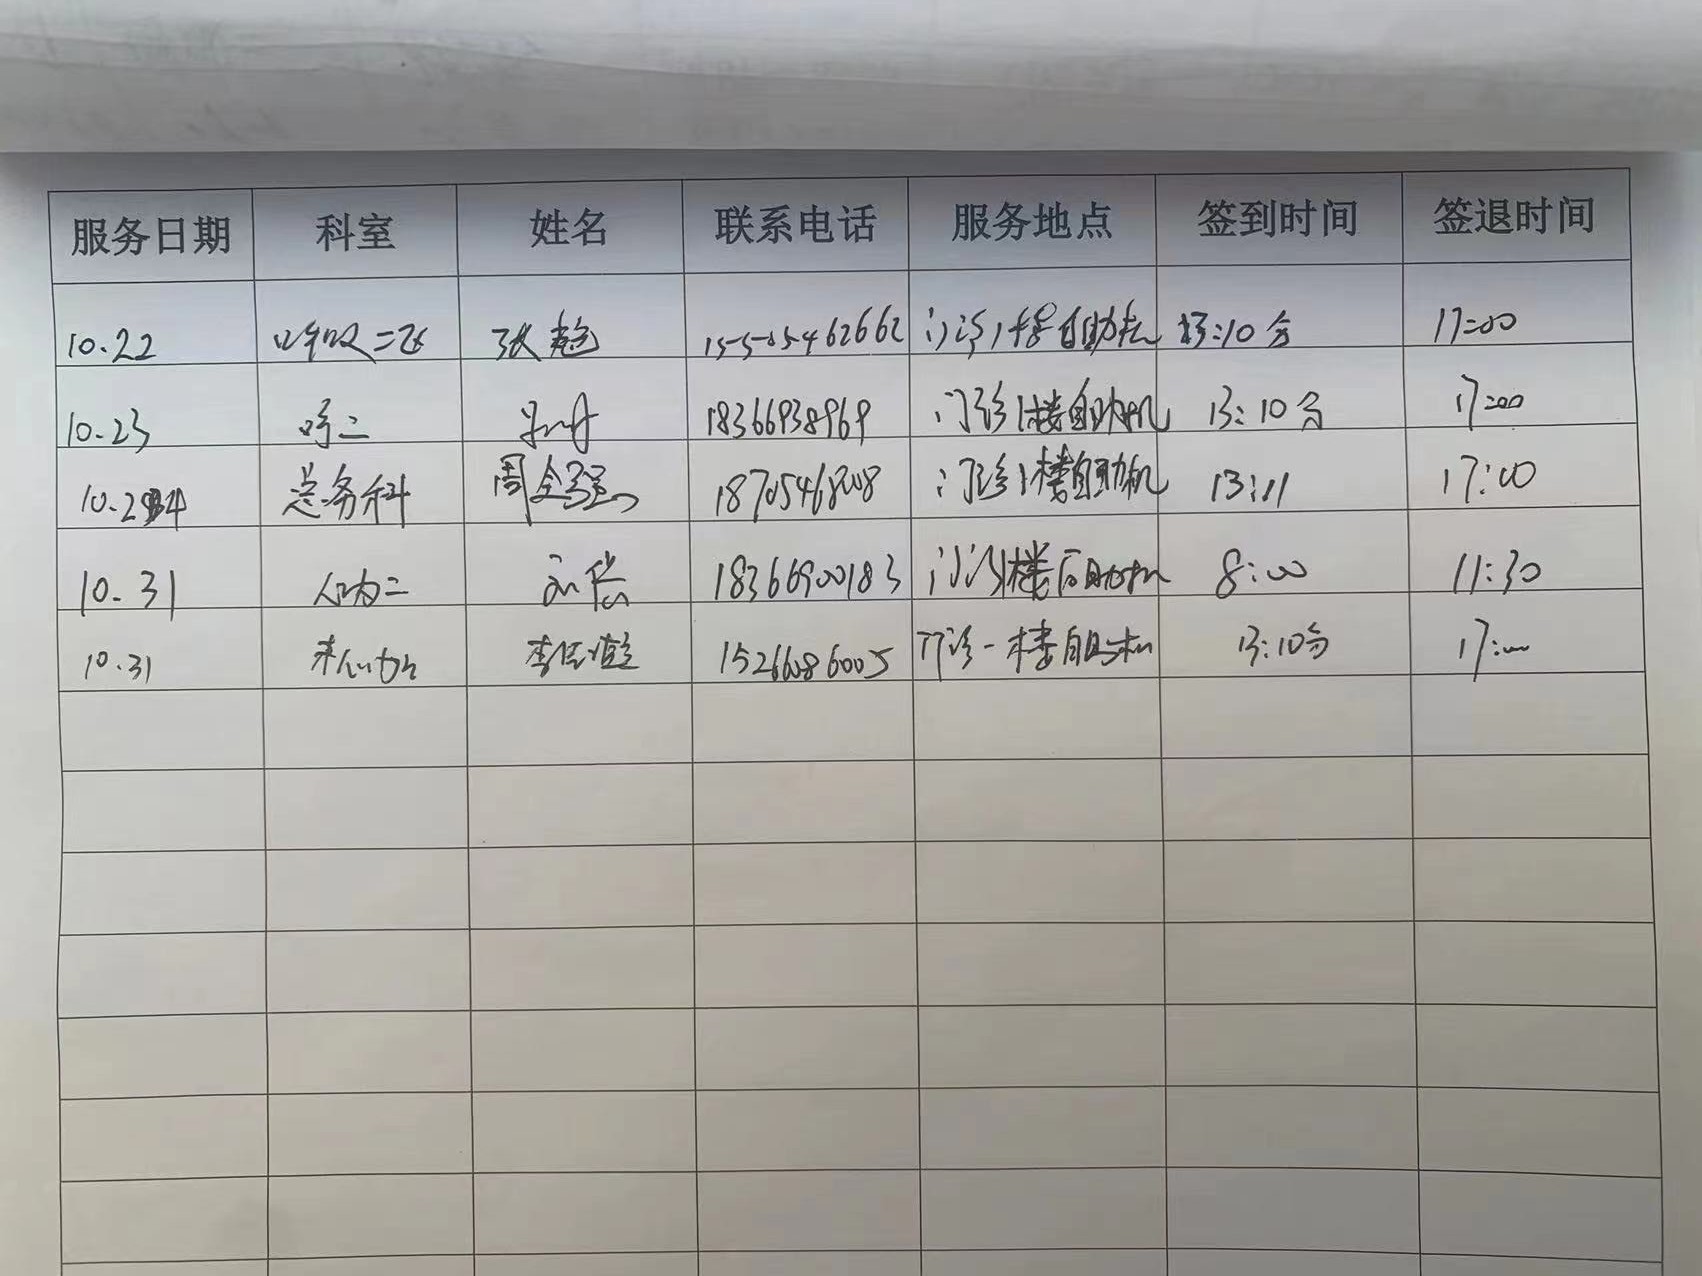 服务日期 科室 姓名 联系电话 服务地点 签到时间 签退时间
10.22 呼吸二 张艳 门诊1楼自助机 13:10分 17:00
10.23 呼二 18366938969 门诊1楼自助机 13:10分 17:00
10.24 总务科 周全 18705468208 门诊1楼自助机 13:11 17:00
10.31 心内二 18366900183 门诊1楼自助机 8:00 11:30
10.31 15266086005 门诊一楼自助机 13:10分 17:00